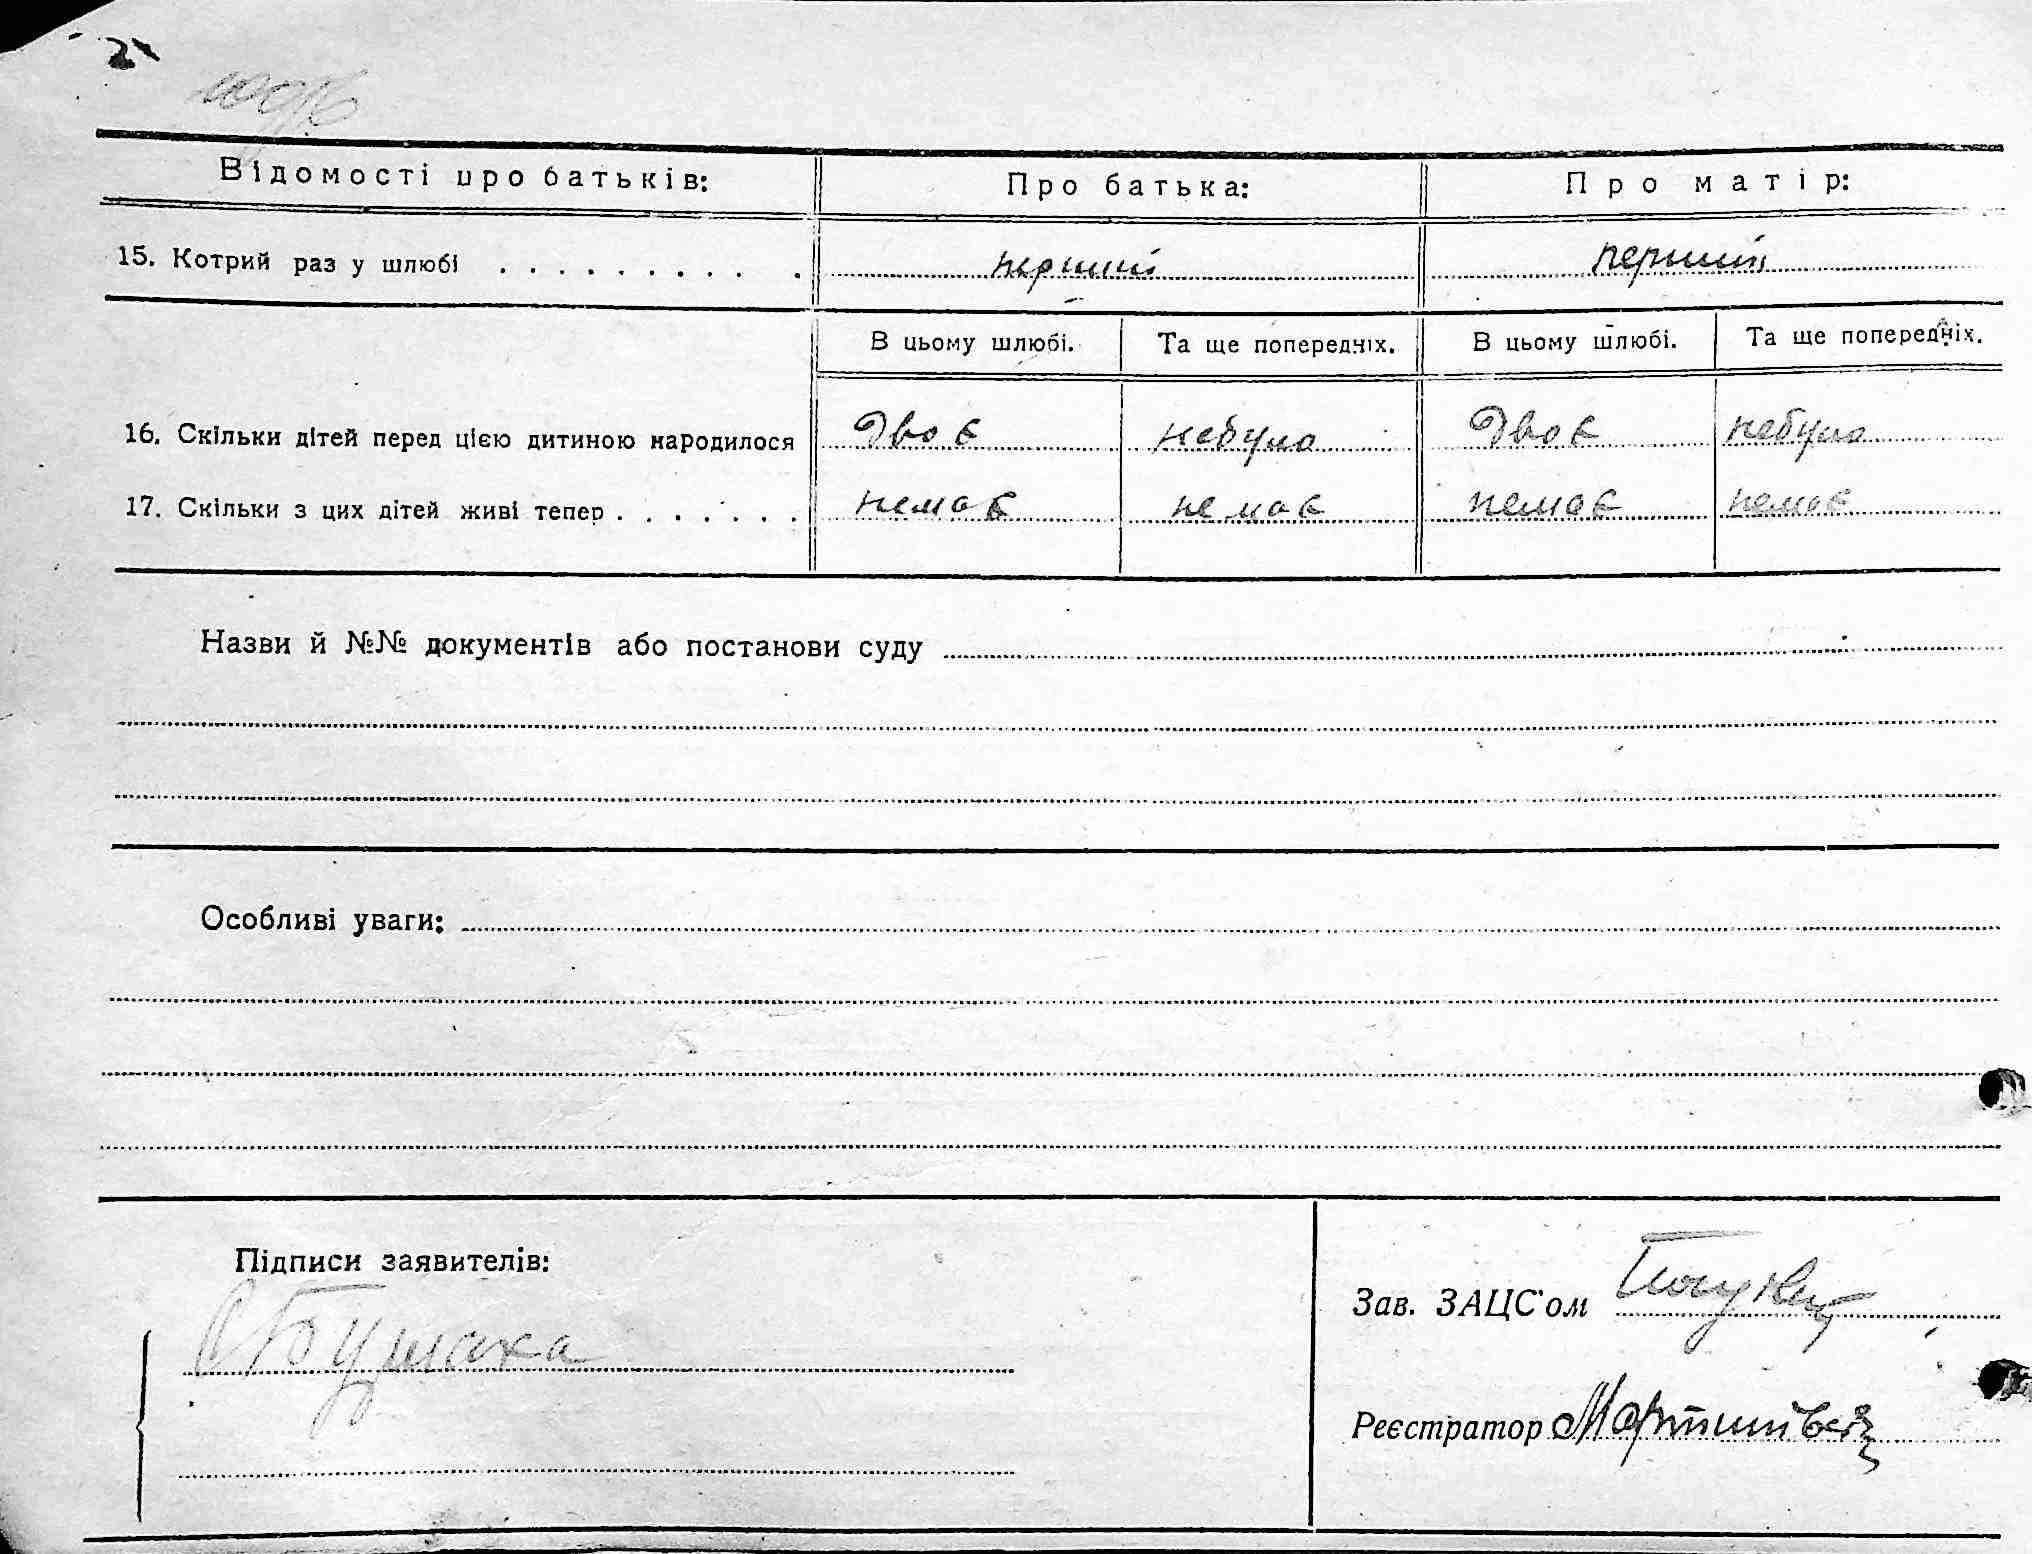 2
Відомості про батьків: Про батька: Про матір:
15. Котрий раз у шлюбі . . . . . . . . . . перший перший
В цьому шлюбі. Та ще попередніх. В цьому шлюбі. Та ще попередніх.
16. Скільки дітей перед цією дитиною народилося Двоє небуло Двоє небуло
17. Скільки з цих дітей живі тепер . . . . . . . немає немає немає немає
Назви й №№ документів або постанови суду
Особливі уваги:
Підписи заявителів:
Зав. ЗАЦС'ом
Реєстратор